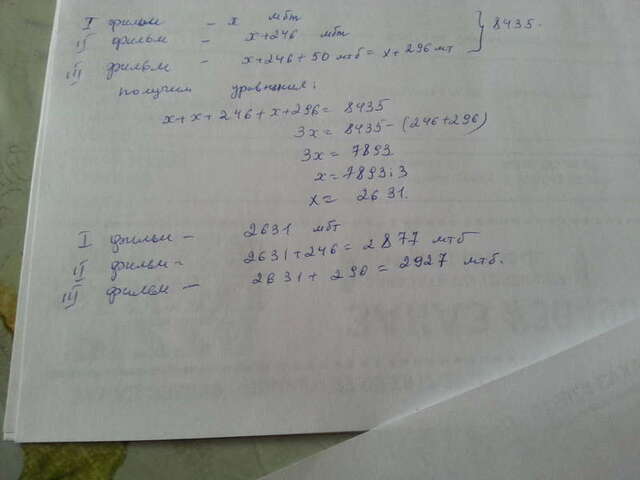 I фильм - x мбт
II фильм - x+246 мбт } 8435.
III фильм - x+246+50 мтб = x+296 мт
получим уравнения:
x+x+246+x+296= 8435
3x = 8435-(246+296)
3x = 7893
x=7893:3
x= 2631.
I фильм - 2631 мбт
II фильм - 2631+246= 2877 мтб
III фильм - 2631+ 290 = 2927 мтб.